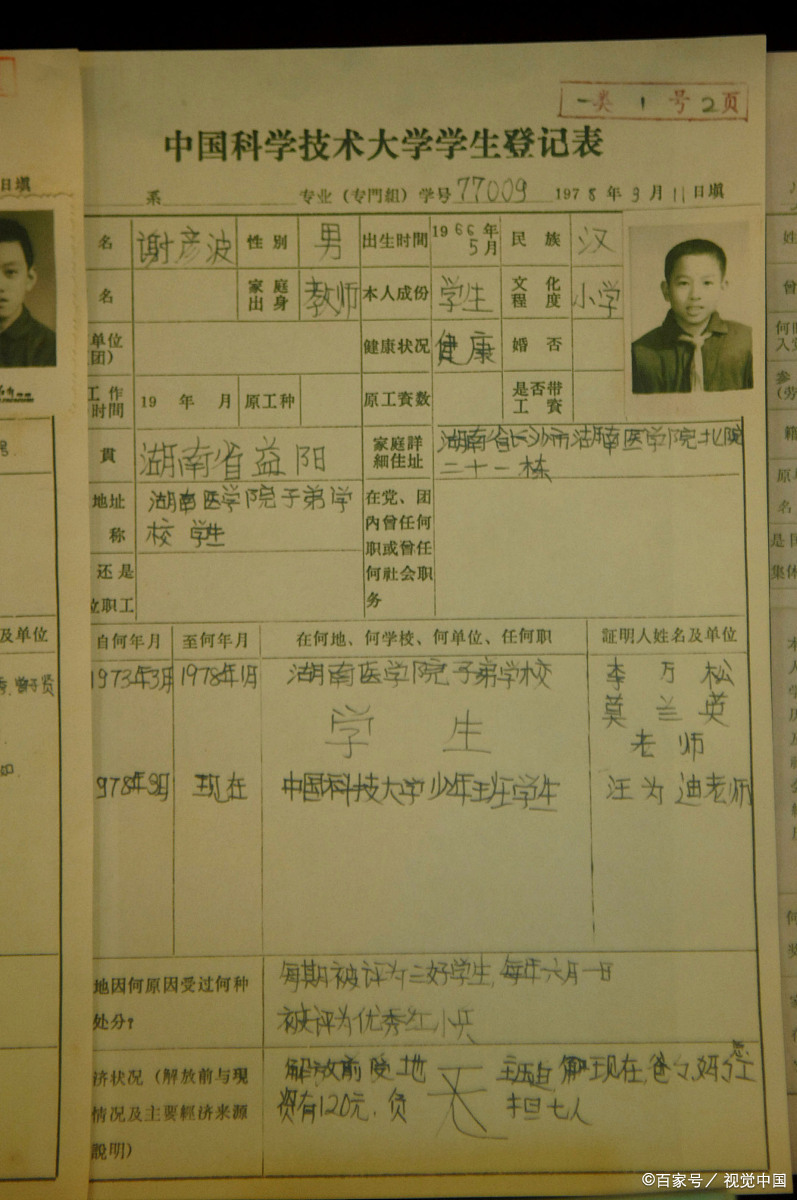 一类 1 号 2 页
中国科学技术大学学生登记表
系 专业（专門組）学号 77009 1978 年 9 月 11 日填
名 谢彦波 性別 男 出生时間 1966年5月 民族 汉
名 家庭出身 教师 本人成份 学生 文化程度 小学
单位 团） 健康状况 健康 婚否
工作时間 19 年 月 原工种 原工資数 是否带工資
貫 湖南省益阳 家庭詳細住址 湖南省长沙市湖南医学院北院
二十一栋
地址 湖南医学院子弟学
称 校 学生
在党、团
内曾任何
职或曾任
何社会职
务
还是
职工
自何年月 至何年月 在何地、何学校、何单位、任何职 証明人姓名及单位
1973年3月 1978年1月 湖南医学院子弟学校 李万松
学生 莫兰英
老师
978年3月 现在 中国科技大学少年班学生 汪为迪老师
地因何原因受过何种
处分？
每期被评为三好学生，每年六月一日
被评为优秀红小兵
济状况（解放前与現
情况及主要經济来源
説明）
解放前受地 主压迫 现在，爸爸妈妈工
资有120元，负 担七人
日填
及单位
©百家号／视觉中国